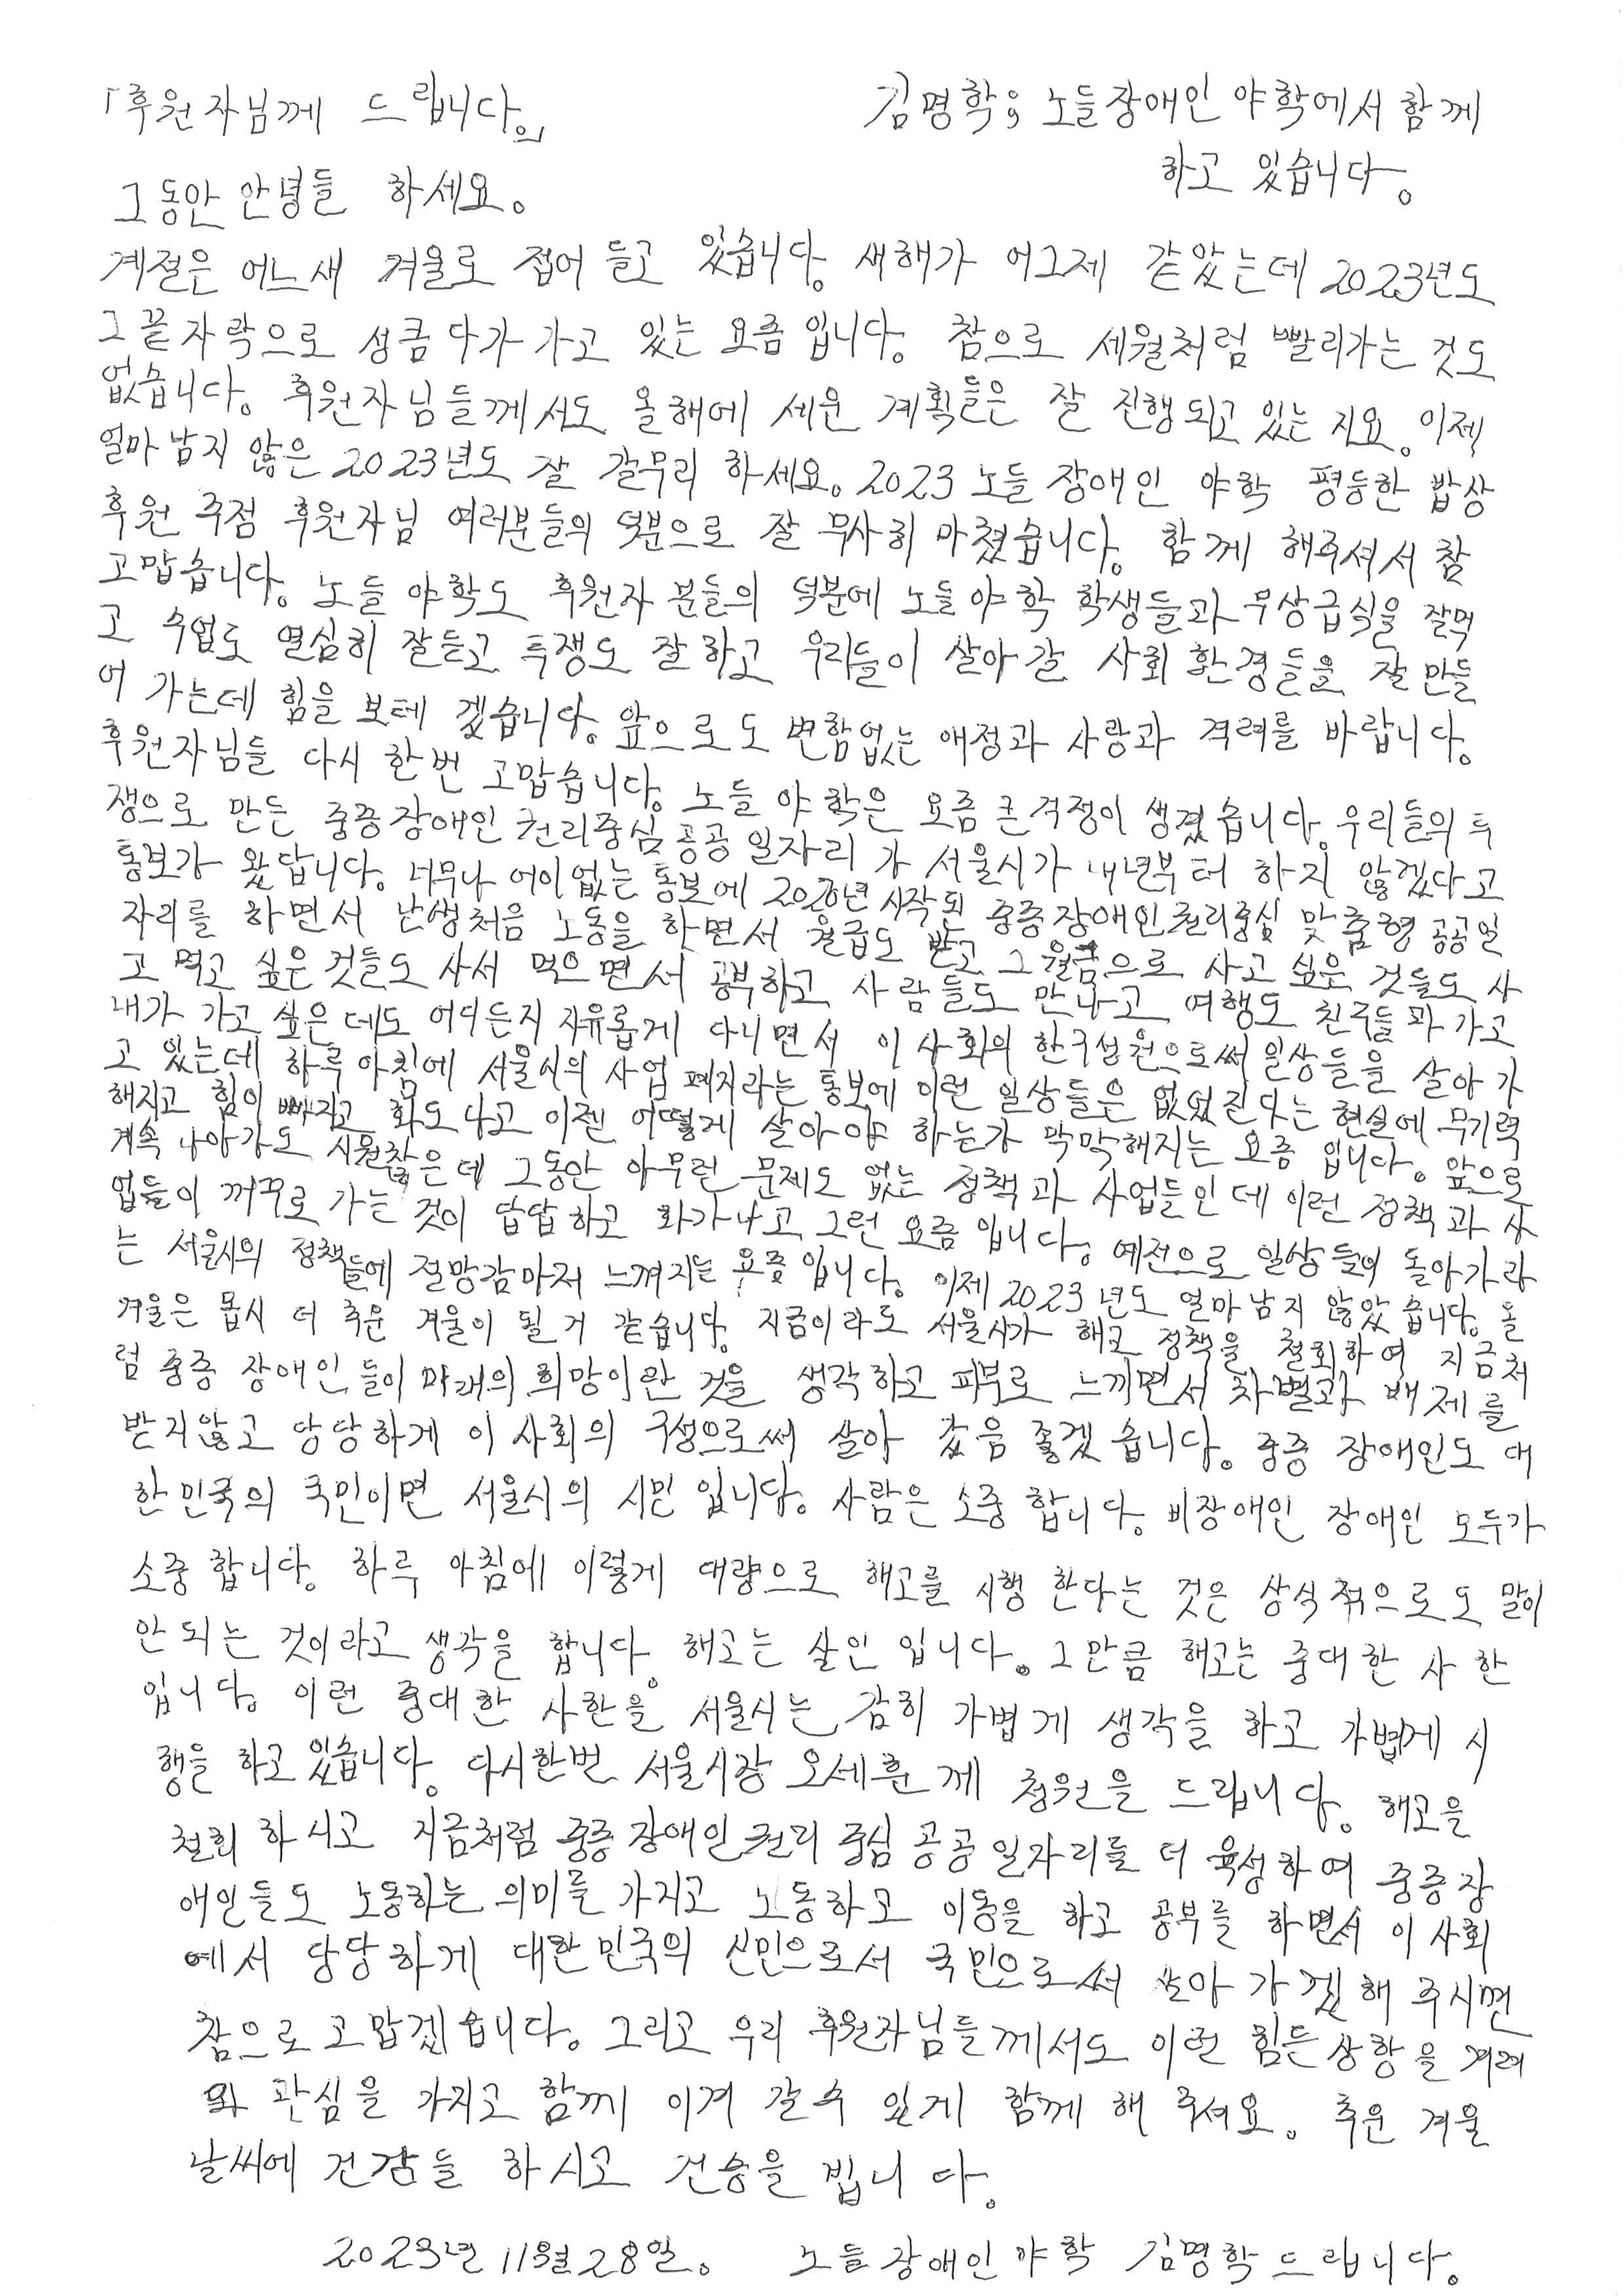 「후원자님께 드립니다.」
김명학; 노들장애인 야학에서 함께
하고 있습니다.
그동안 안녕들 하세요.
계절은 어느새 겨울로 접어 들고 있습니다. 새해가 어그제 같았는데 2023년도
그 끝자락으로 성큼 다가 가고 있는 요즘 입니다. 참으로 세월처럼 빨리가는 것도
없습니다. 후원자님들께서도 올해에 세운 계획들은 잘 진행되고 있는 지요. 이제
얼마 남지 않은 2023년도 잘 갈무리 하세요. 2023 노들 장애인 야학 평등한 밥상
후원 주점 후원자님 여러분들의 덕분으로 잘 무사히 마쳤습니다. 함께 해주셔서 참
고맙습니다. 노들 야학도 후원자 분들의 덕분에 노들 야학 학생들과 무상급식을 잘먹
고 수업도 열심히 잘듣고 투쟁도 잘하고 우리들이 살아갈 사회 환경들을 잘 만들
어 가는데 힘을 보테 겠습니다. 앞으로도 변함없는 애정과 사랑과 격려를 바랍니다.
후원자님들 다시 한번 고맙습니다. 노들 야학은 요즘 큰 걱정이 생겼습니다. 우리들의 투
쟁으로 만든 중증장애인 권리중심 공공 일자리 가 서울시가 내년부터 하지 않겠다고
통보가 왔답니다. 너무나 어이없는 통보에 2020년 시작된 중증장애인권리중심 맞춤형 공공일
자리를 하면서 난생처음 노동을 하면서 월급도 받고 그 월급으로 사고 싶은 것들도 사
고 먹고 싶은 것들도 사서 먹으면서 공부하고 사람들도 만나고 여행도 친구들과 가고
내가 가고 싶은 데도 어디든지 자유롭게 다니면서 이 사회의 한구성원으로써 일상들을 살아가
고 있는데 하루 아침에 서울시의 사업 폐지라는 통보에 이런 일상들은 없었진다는 현실에 무기력
해지고 힘이 빠지고 화도 나고 이젠 어떻게 살아야 하는가 막막해지는 요즘 입니다. 앞으로
계속 나아가도 시원찮은데 그동안 아무런 문제도 없는 정책과 사업들인데 이런 정책과 사
업들이 꺼꾸로 가는 것이 답답하고 화가나고 그런 요즘 입니다. 예전으로 일상들의 돌아가라
는 서울시의 정책들에 절망감마저 느껴지는 요즘 입니다. 이제 2023년도 얼마 남지 않았습니다. 올
겨울은 몹시 더 추운 겨울이 될거 같습니다. 지금이라도 서울시가 해고 정책을 철회하여 지금처
럼 중증 장애인 들이 미래의 희망이란 것을 생각하고 피부로 느끼면서 차별과 배제를
받지않고 당당하게 이 사회의 구성으로써 살아 갔음 좋겠습니다. 중증 장애인도 대
한민국의 국민이면 서울시의 시민 입니다. 사람은 소중 합니다. 비장애인 장애인 모두가
소중 합니다. 하루 아침에 이렇게 대량으로 해고를 시행 한다는 것은 상식적으로도 말이
안 되는 것이라고 생각을 합니다. 해고는 살인 입니다. 그만큼 해고는 중대한 사 한
입니다. 이런 중대한 사한을 서울시는 감히 가볍게 생각을 하고 가볍게 시
행을 하고 있습니다. 다시한번 서울시장 오세훈께 청원을 드립니다. 해고을
철회 하시고 지금처럼 중증 장애인 권리 중심 공공 일자리를 더 육성하여 중증장
애인들도 노동하는 의미를 가지고 노동하고 이동을 하고 공부를 하면서 이 사회
에서 당당하게 대한민국의 신민으로서 국민으로써 살아 가겠 해 주시면
참으로 고맙겠습니다. 그리고 우리 후원자님들께서도 이런 힘든 상황을 격려
와 관심을 가지고 함께 이겨 갈수 있게 함께 해 주셔요. 추운 겨울
날씨에 건강들 하시고 건승을 빕니다.
2023년 11월 28일. 노들장애인야학 김명학 드립니다.